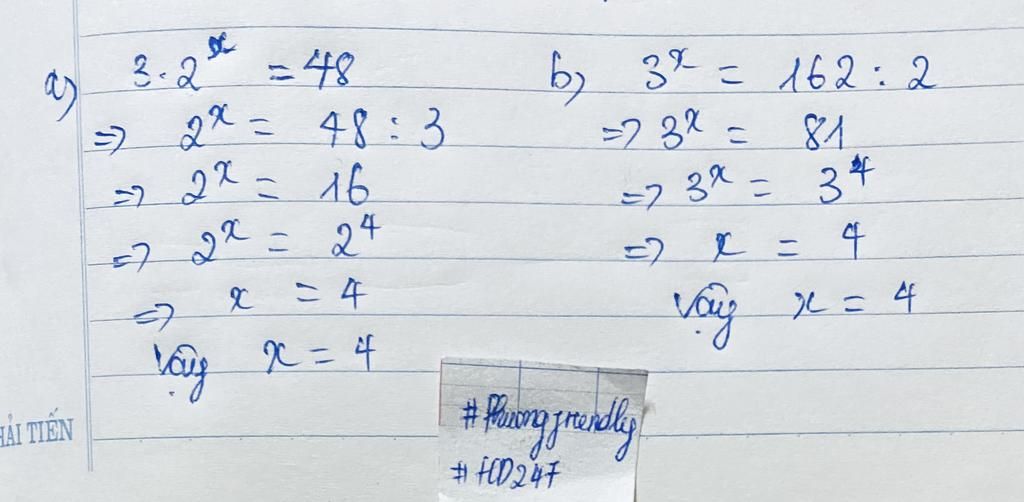 a) 3.2^x = 48
=> 2^x = 48 : 3
=> 2^x = 16
=> 2^x = 2^4
=> x = 4
Vậy x = 4
b) 3^x = 162 : 2
=> 3^x = 81
=> 3^x = 3^4
=> x = 4
Vậy x = 4
#Phuongfriendly
#HD247
HẢI TIẾN